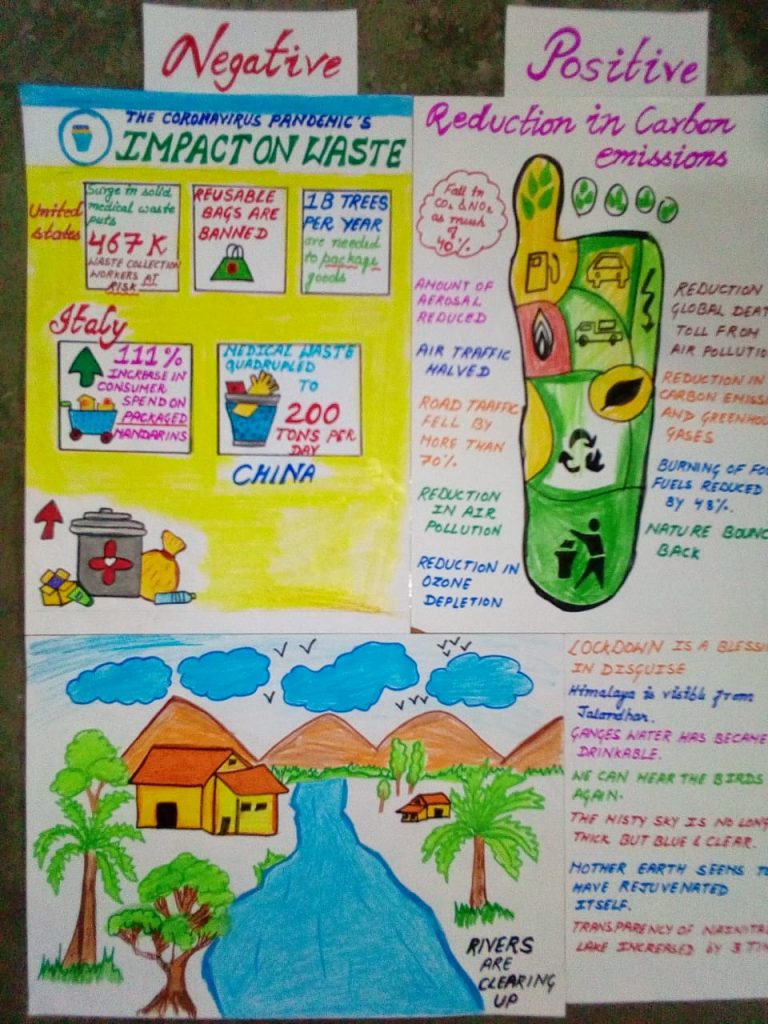 Negative
THE CORONAVIRUS PANDEMIC'S
IMPACT ON WASTE
United
states
Surge in solid
medical waste
puts
467 K
WASTE COLLECTION
WORKERS AT
RISK
REUSABLE
BAGS ARE
BANNED
1B TREES
PER YEAR
are needed
to package
goods
Italy
111%
INCREASE IN
CONSUMER
SPEND ON
PACKAGED
MANDARINS
MEDICAL WASTE
QUADRUPLED
TO
200
TONS PER
DAY
CHINA
Positive
Reduction in Carbon
emissions
Fall in
CO2 & NO2
as much
40%.
AMOUNT OF
AEROSAL
REDUCED
AIR TRAFFIC
HALVED
ROAD TRAFFIC
FELL BY
MORE THAN
70%.
REDUCTION
IN AIR
POLLUTION
REDUCTION IN
OZONE
DEPLETION
REDUCTION
GLOBAL DEAT
TOLL FROM
AIR POLLUTIO
REDUCTION IN
CARBON EMISS
AND GREENHOU
GASES
BURNING OF FO
FUELS REDUCED
BY 48%.
NATURE BOUNC
BACK
RIVERS
ARE
CLEARING
UP
LOCKDOWN IS A BLESSI
IN DISGUISE
Himalaya is visible from
Jalandhar.
GANGES WATER HAS BECAME
DRINKABLE.
WE CAN HEAR THE BIRDS
AGAIN.
THE MISTY SKY IS NO LONG
THICK BUT BLUE & CLEAR.
MOTHER EARTH SEEMS T
HAVE REJUVENATED
ITSELF.
TRANSPARENCY OF NAINITA
LAKE INCREASED BY 3 TIM